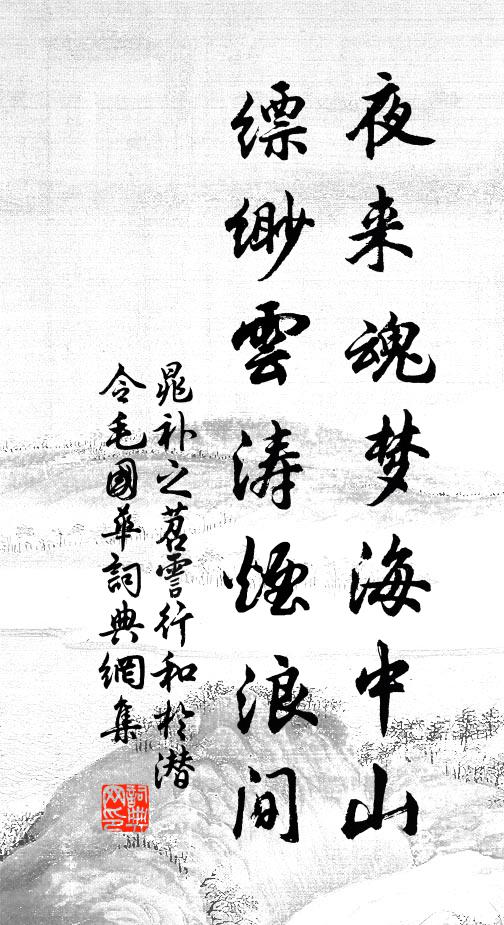 夜来魂梦海中山
缥缈雲涛煙浪间
晁补之苕霅行和於潜
令毛國华詞典網集